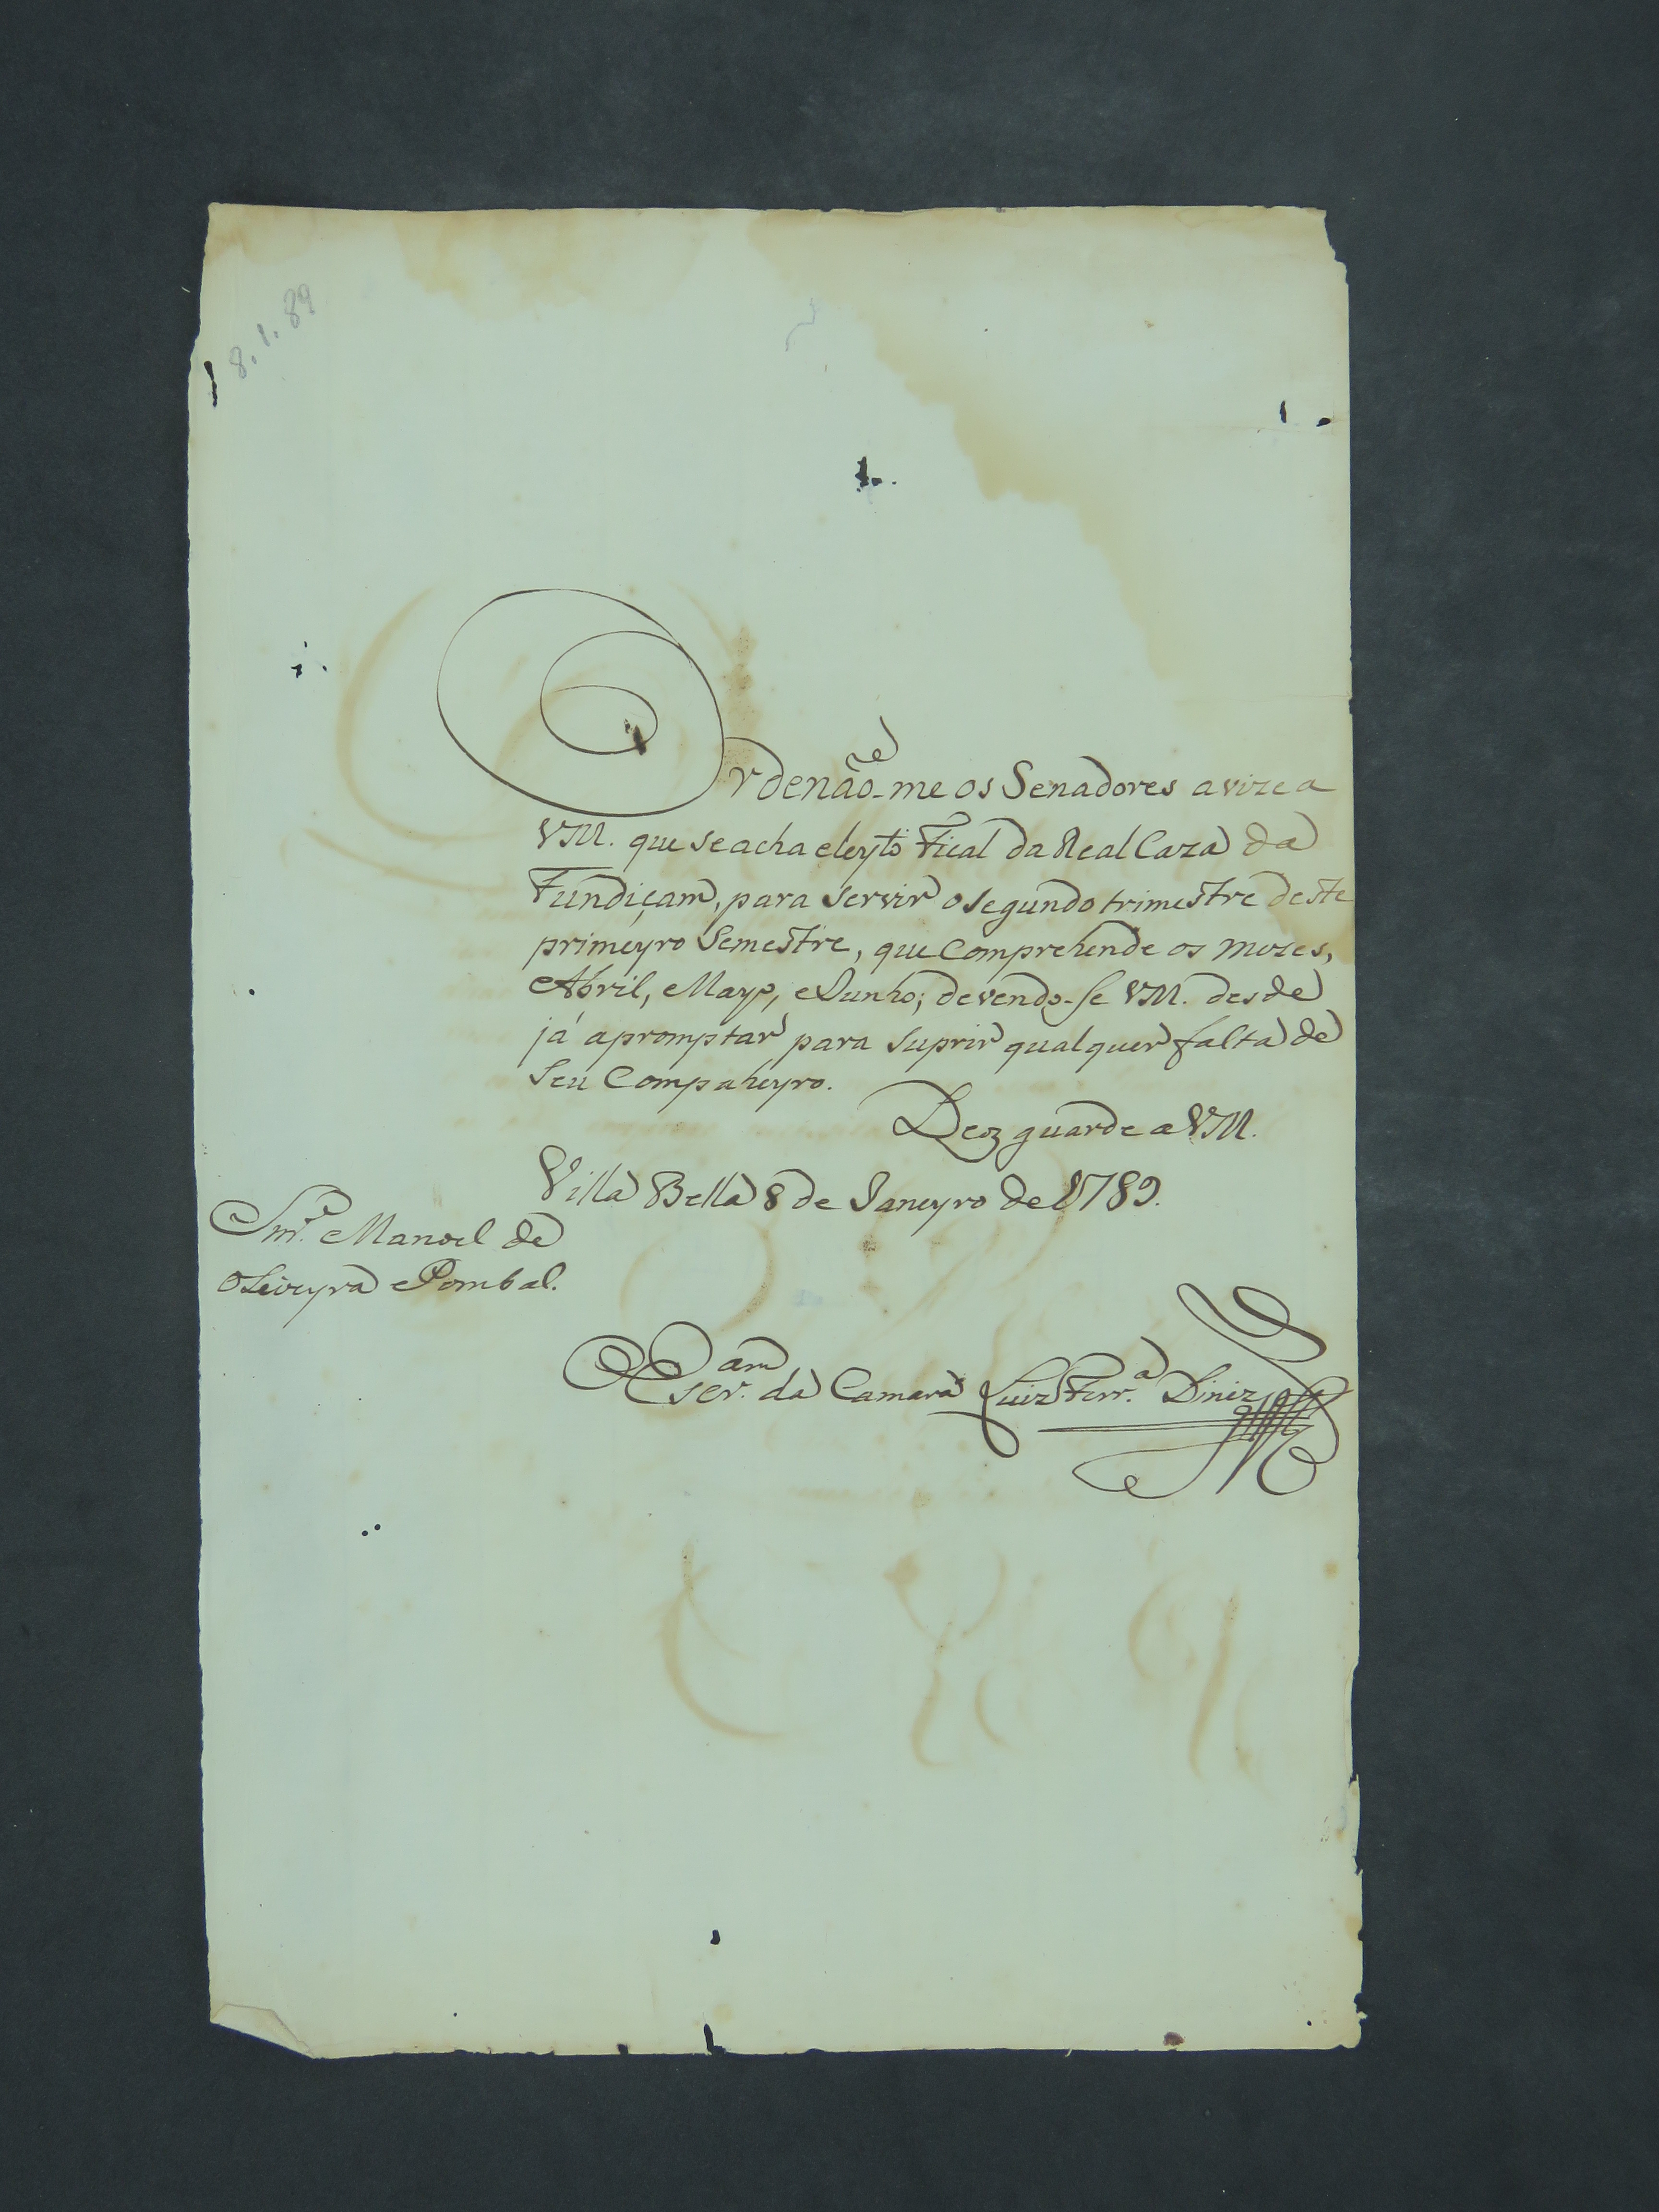 8.1.89
Ordenão-me os Senadores avize a
VM. que se acha eleyto Fical da Real Caza da
Fundiçam, para servir o segundo trimestre deste
primeyro Semestre, que Comprehende os mezes,
Abril, Mayo, e Junho; devendo-se VM. desde
já apromptar para suprir qualquer falta de
seu Compaheyro.
Deos guarde a VM.
Villa Bella 8 de Janeyro de 1789.
Snr. Manoel de
Oliveyra Pombal.
O Escr.am da Camara Luiz Ferr.a Diniz